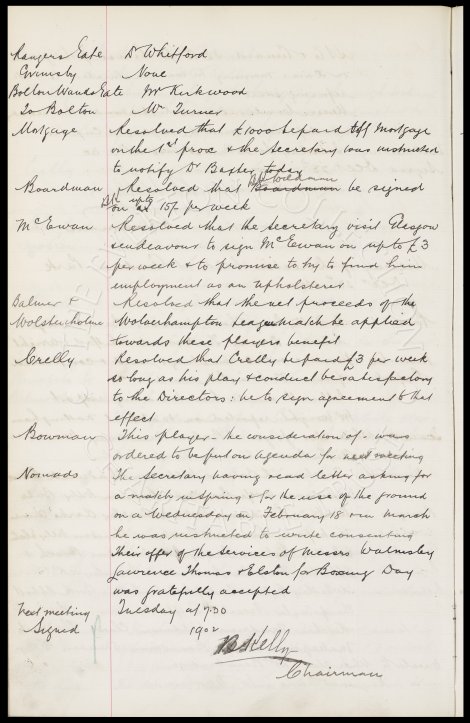 Rangers Gate Dr Whitford
Grimsby None
Bolton Wands Gate Mr Kirkwood
To Bolton Mr Turner
Mortgage Resolved that £1000 be paid off Mortgage
on the 1st prox & the Secretary was instructed
to notify Dr Baxter today
Boardman Resolved that Boardman be signed
on at up to 15/- per week
McEwan Resolved that the Secretary visit Glasgow
& endeavour to sign McEwan on up to £3
per week & to promise to try to find him
employment as an upholsterer
Balmer & Resolved that the net proceeds of the
Wolstenholme Wolverhampton League Match be applied
towards these players benefit
Crelly Resolved that Crelly be paid £3 per week
so long as his play & conduct be satisfactory
to the Directors: he to sign agreement to that
effect
Bowman This player - the consideration of - was
ordered to be put on Agenda for next meeting
Nomads The Secretary having read letter asking for
a match in Spring & for the use of the ground
on a Wednesday in February 18 or in March
he was instructed to write consenting
Their offer of the Services of Messrs Walmsley
Lawrence Thomas & Elston for Boxing Day
was gratefully accepted
Next meeting Tuesday at 7.30
Signed 1902
Kelly
Chairman